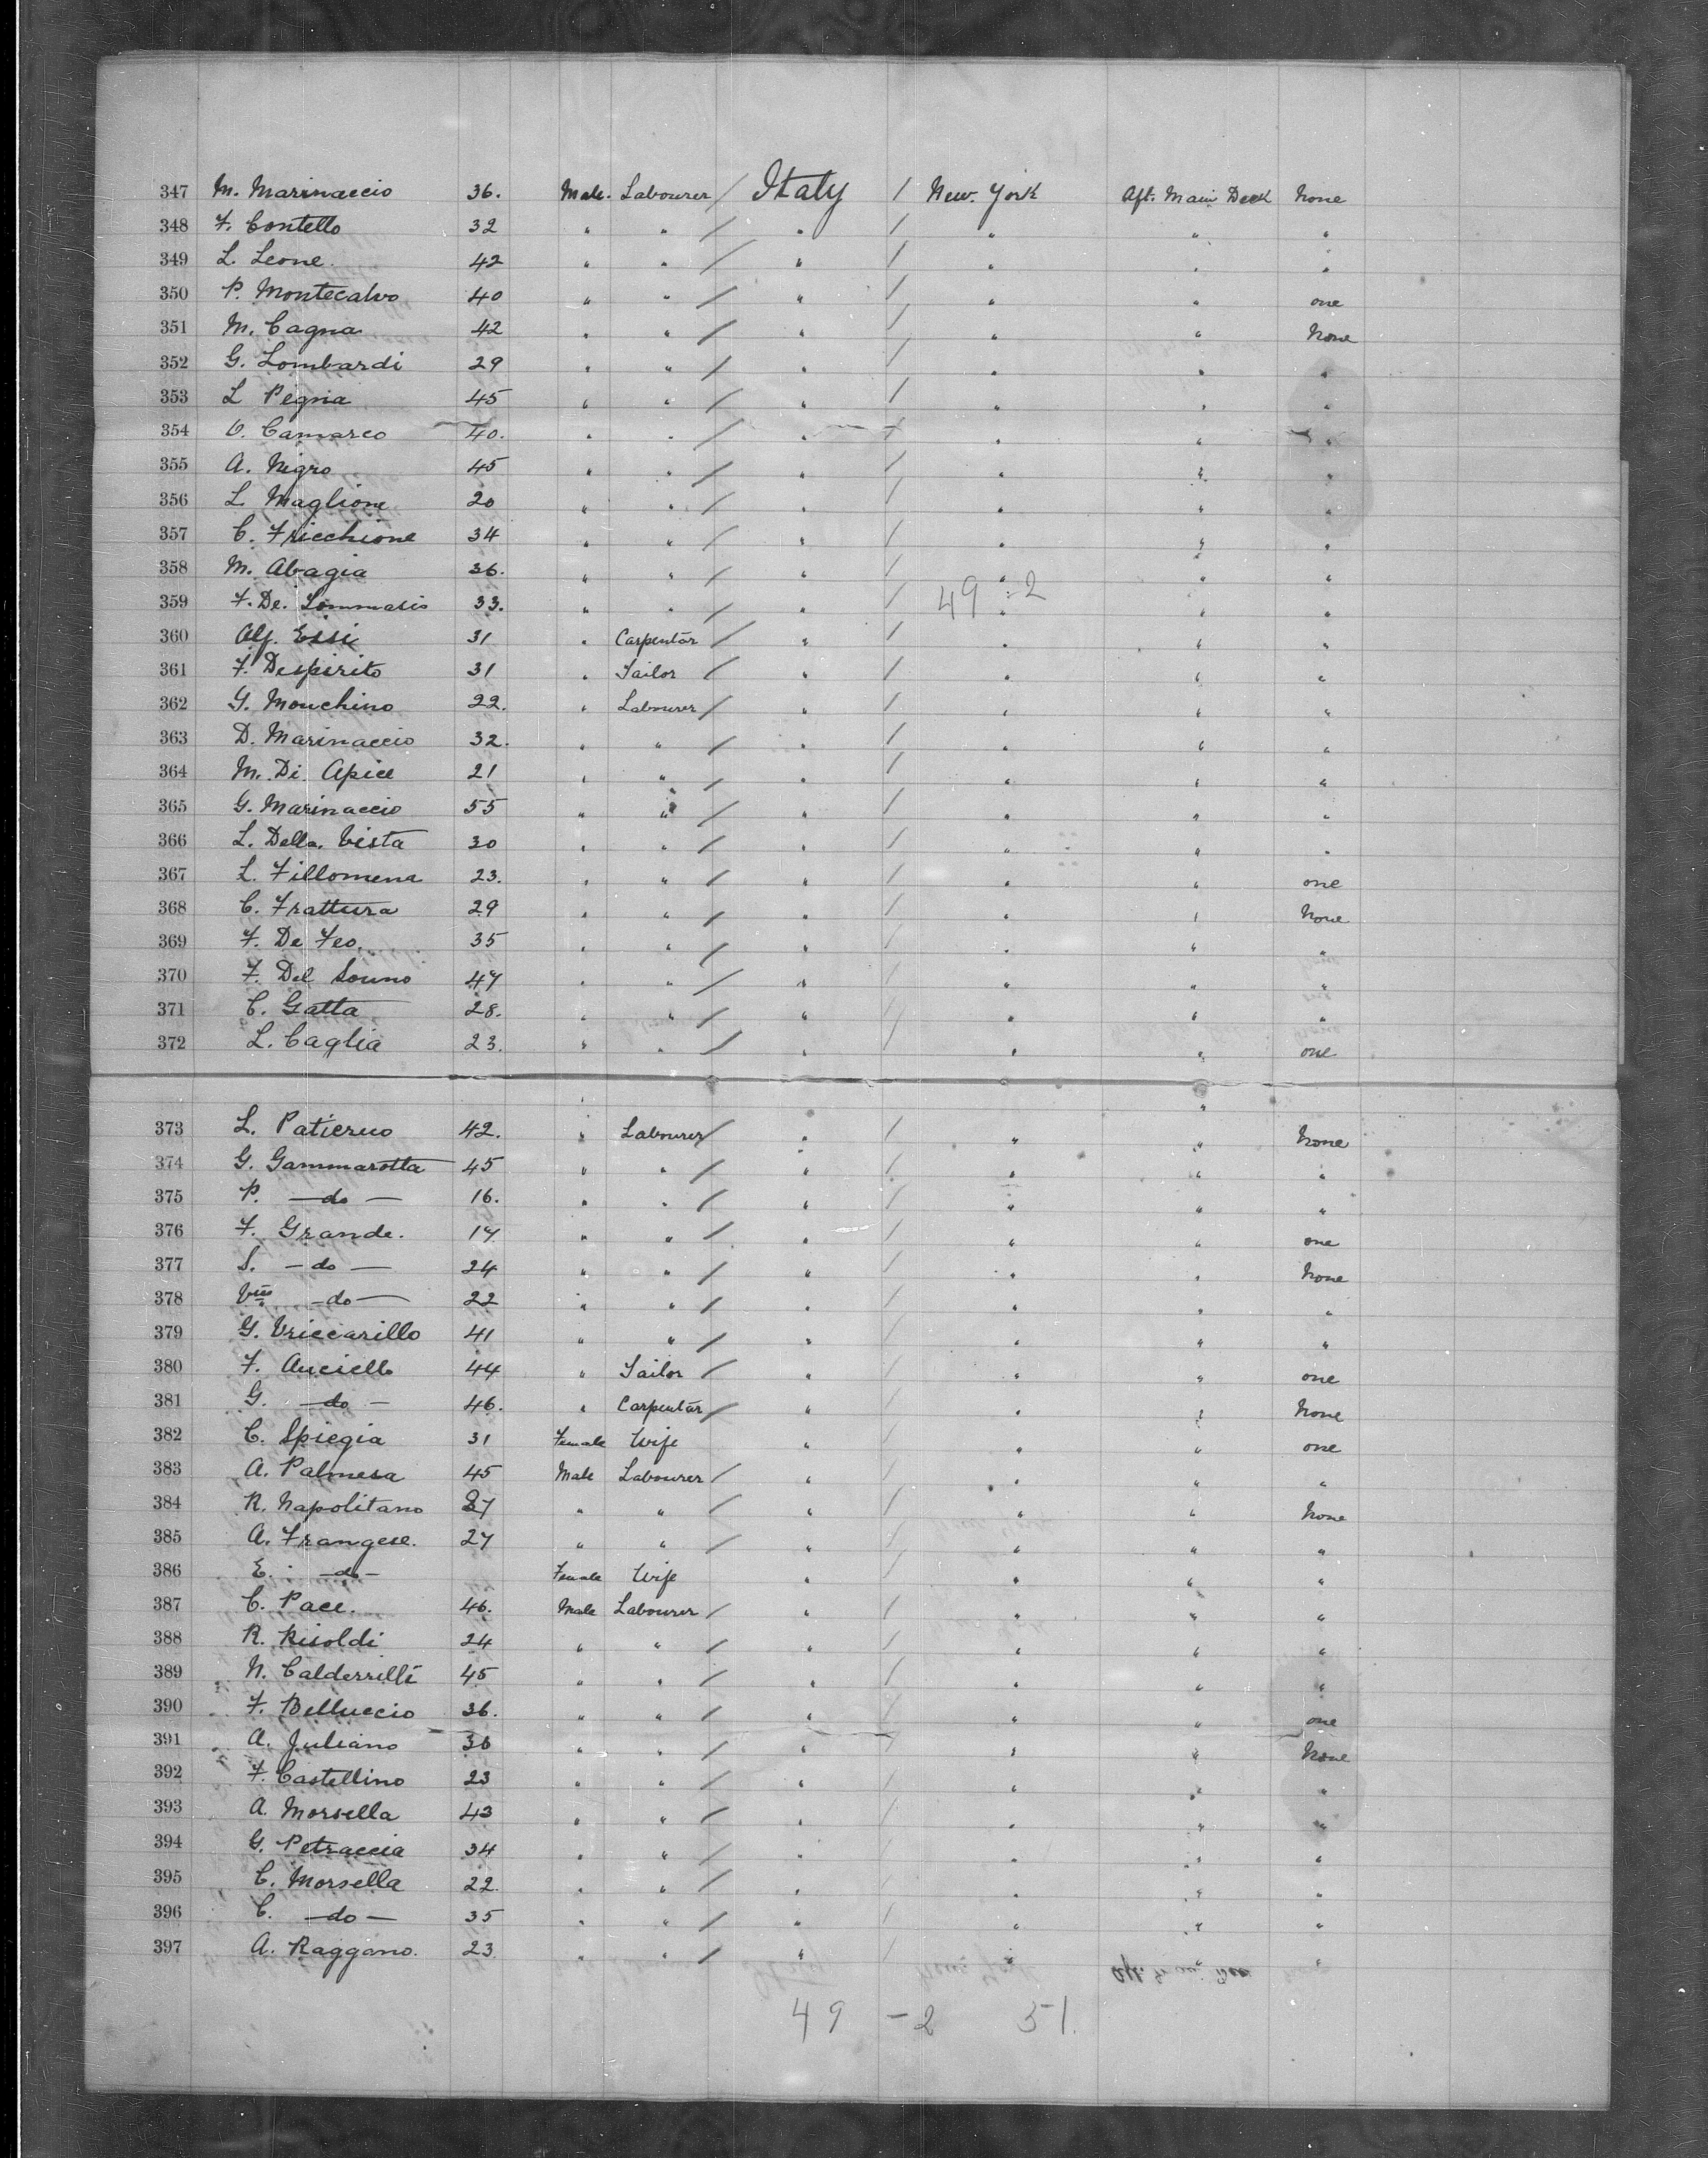 347 M. Marinaccio 36. Male. Labourer / Italy / New. York Aft. Main Deck None
348 F. Contello 32 " " / " / " " "
349 L. Leone 42 " " / " / " " "
350 P. Montecalvo 40 " " / " / " " one
351 M. Cagna 42 " " / " / " " None
352 G. Lombardi 29 " " / " / " " "
353 L Pegna 45 " " / " / " " "
354 V. Camarco 40. " " / " / " " "
355 A. Nigro 45 " " / " / " " "
356 L Maglione 20 " " / " / " " "
357 C. Fricchione 34 " " / " / " " "
358 M. Abagia 36. " " / " / " " "
359 F. De. Tommasis 33. " " / " / 49 - 2 " " "
360 Alf. Essi 31 " Carpenter / " / " " "
361 F. Despirito 31 " Tailor / " / " " "
362 G. Monchino 22. " Labourer / " / " " "
363 D. Marinaccio 32. " " / " / " " "
364 M. Di Apice 21 " " / " / " " "
365 G. Marinaccio 55 " " / " / " " "
366 L. Della. Vista 30 " " / " / " " "
367 L. Fillomena 23. " " / " / " " one
368 C. Frattura 29 " " / " / " " None
369 F. De Feo. 35 " " / " / " " "
370 F. Del Sonno 47 " " / " / " " "
371 C. Gatta 28. " " / " / " " "
372 L. Caglia 23. " " / " / " " one
373 L. Patierno 42. " Labourer / " / " " None
374 G. Gammarotta 45 " " / " / " " "
375 P. — do — 16. " " / " / " " "
376 F. Grande. 17 " " / " / " " one
377 S. — do — 24 " " / " / " " None
378 — do — 22 " " / " / " " "
379 G. Vriccarillo 41 " " / " / " " "
380 F. Auciello 44 " Tailor / " / " " one
381 G. — do — 46. " Carpenter / " / " " None
382 C. Spiegia 31 Female Wife " / " " one
383 A. Palmesa 45 Male Labourer / " / " " "
384 R. Napolitano 37 " " / " / " " None
385 A. Frangese. 27 " " / " / " " "
386 E. — do — Female Wife " / " " "
387 C. Pace. 46. Male Labourer / " / " " "
388 R. Risoldi 24 " " / " / " " "
389 N. Calderrilli 45 " " / " / " " "
390 F. Belluccio 36. " " / " / " " one
391 A. Juliano 36 " " / " / " " None
392 F. Castellino 23 " " / " / " " "
393 A. Morsella 43 " " / " / " " "
394 G. Petraccia 34 " " / " / " " "
395 C. Morsella 22. " " / " / " " "
396 C. — do — 35 " " / " / " " "
397 A. Raggano. 23. " " / " / " " "
49 - 2 51.